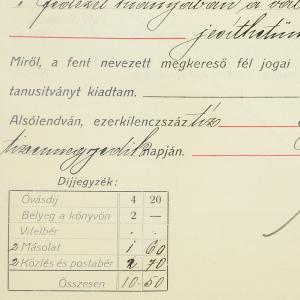 fedezet hiányában a
jegyzettünk
Miről, a fent nevezett megkereső fél jogai
tanusitványt kiadtam.
Alsólendván, ezerkilenczszáz tíz
tizennegyedik napján.
Dijjegyzék:
Óvásdij 4 20
Bélyeg a könyvön 2 —
Vitelbér . .
2 Másolat 1 60
2 Közlés és postabér 2 70
Összesen 10 50